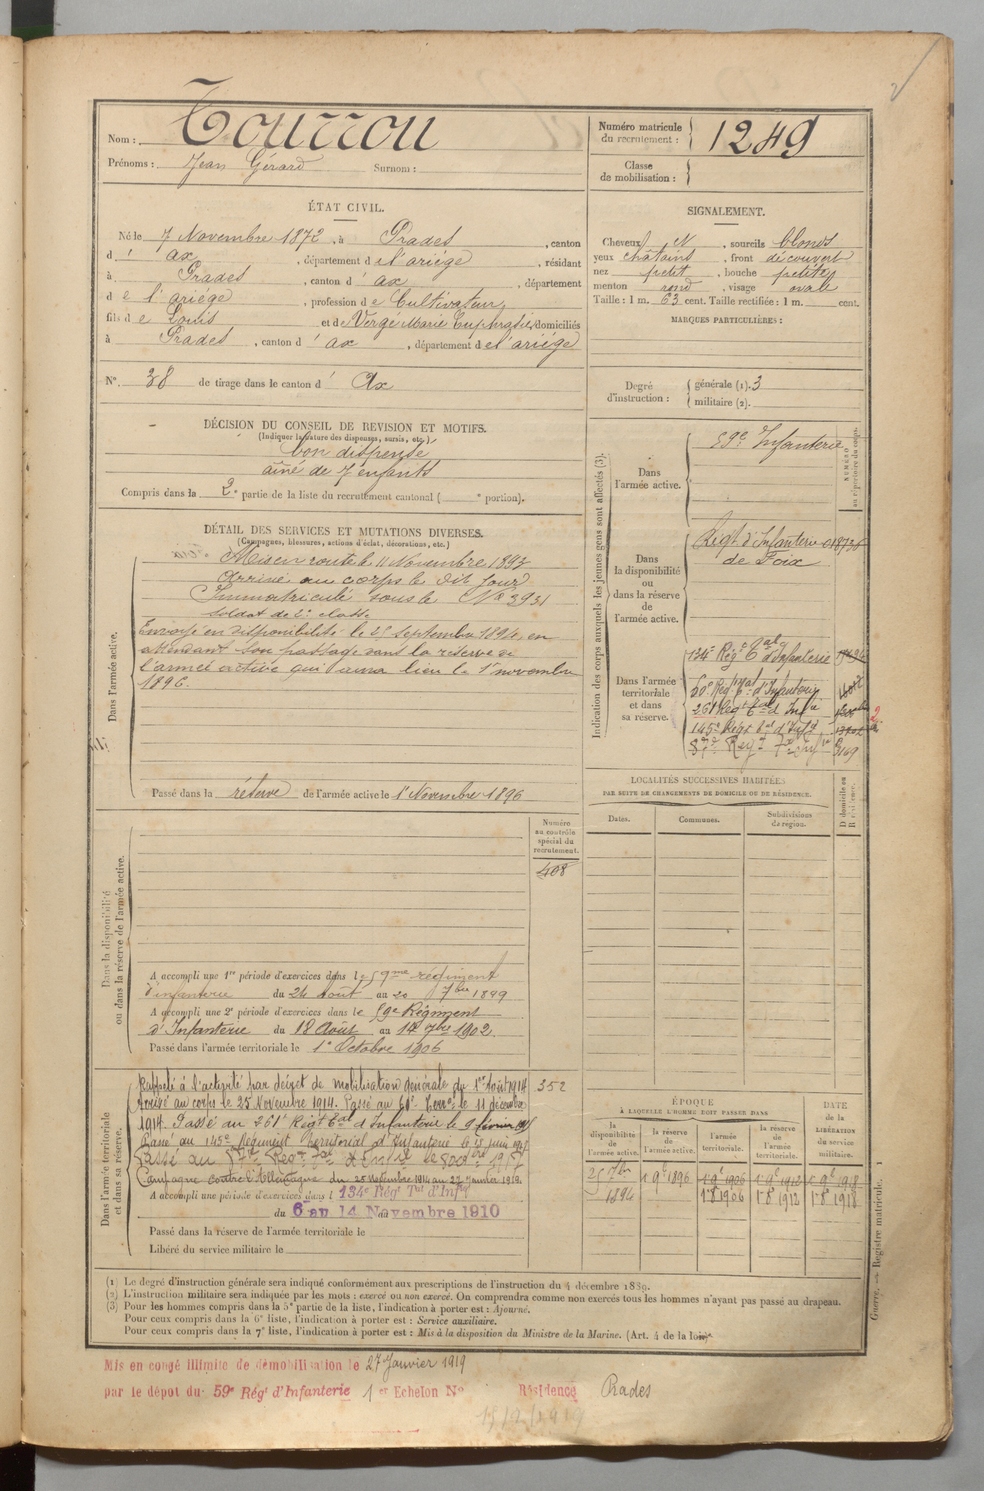 Nom : Tourrou
Prénoms : Jean Gérard Surnom :
Numéro matricule du recrutement : 1249
Classe de mobilisation :
ÉTAT CIVIL.
Né le 7 Novembre 1872, à Prades, canton
d' ax, département de l'ariége, résidant
à Prades, canton d' ax, département
de l'ariége, profession de Cultivateur,
fils de Louis et de Vergé Marie Euphrasie, domiciliés
à Prades, canton d' ax, département de l'ariége
N° 38 de tirage dans le canton d' Ax
SIGNALEMENT.
Cheveux N, sourcils blonds
yeux châtains, front découvert
nez petit, bouche petite
menton rond, visage ovale
Taille : 1 m. 63 cent. Taille rectifiée : 1 m. cent.
MARQUES PARTICULIÈRES :
Degré d'instruction : générale (1). 3
militaire (2).
DÉCISION DU CONSEIL DE REVISION ET MOTIFS.
(Indiquer la nature des dispenses, sursis, etc.)
bon dispensé
aîné de 7 enfants
Compris dans la 2e partie de la liste du recrutement cantonal ( e portion).
DÉTAIL DES SERVICES ET MUTATIONS DIVERSES.
(Campagnes, blessures, actions d'éclat, décorations, etc.)
Dans l'armée active.
Mis en route le 11 Novembre 1893
Arrivé au corps le dit jour
Immatriculé sous le No 3931
soldat de 2e classe
Envoyé en disponibilité le 25 septembre 1894 en
attendant son passage dans la réserve de
l'armée active qui aura lieu le 1er novembre
1896.
Passé dans la réserve de l'armée active le 1er Novembre 1896
Indication des corps auxquels les jeunes gens sont affectés (3).
Dans l'armée active.
59e Infanterie
NUMÉRO au répertoire du corps.
Dans la disponibilité ou dans la réserve de l'armée active.
Régt d'Infanterie
de Foix
Dans l'armée territoriale et dans sa réserve.
134e Régt Tal d'Infanterie
60e Régt Tal d'Infanterie
261e Régt Tal d'Infie
145e Régt Tal d'Infie
LOCALITÉS SUCCESSIVES HABITÉES
PAR SUITE DE CHANGEMENTS DE DOMICILE OU DE RÉSIDENCE.
Dates. Communes. Subdivisions de région. D domicile ou R résidence.
Dans la disponibilité ou dans la réserve de l'armée active.
Numéro au contrôle spécial du recrutement.
408
A accompli une 1re période d'exercices dans le 59me régiment
d'infanterie du 24 Août au 20 7bre 1899
A accompli une 2e période d'exercices dans le 59e Régiment
d'Infanterie du 18 Août au 14 7bre 1902.
Passé dans l'armée territoriale le 1er Octobre 1906
Dans l'armée territoriale et dans sa réserve.
Rappelé à l'activité par décret de mobilisation générale du 1er Août 1914 352
Arrivé au corps le 25 Novembre 1914. Passé au 60e Terral le 11 décembre
1914. Passé au 261e Régt Tal d'Infanterie le 9 février
Passé au 145e Régiment Territorial d'Infanterie le
Campagne contre l'Allemagne du 25 Novembre 1914 au 27 janvier 1919.
A accompli une période d'exercices dans l 134e Régt Tal d'Infie
du 6 au 14 Novembre 1910
Passé dans la réserve de l'armée territoriale le
Libéré du service militaire le
ÉPOQUE
À LAQUELLE L'HOMME DOIT PASSER DANS
la disponibilité de l'armée active. la réserve de l'armée active. l'armée territoriale. la réserve de l'armée territoriale.
DATE de la LIBÉRATION du service militaire.
25 7bre 1 9e 1896 1 9e 1906 1 9e 1912 1 9e 1918
1894 1 8e 1906 1 8e 1912 1 8e 1918
(1) Le degré d'instruction générale sera indiqué conformément aux prescriptions de l'instruction du 4 décembre 1889.
(2) L'instruction militaire sera indiquée par les mots : exercé ou non exercé. On comprendra comme non exercés tous les hommes n'ayant pas passé au drapeau.
(3) Pour les hommes compris dans la 5e partie de la liste, l'indication à porter est : Ajourné.
Pour ceux compris dans la 6e liste, l'indication à porter est : Service auxiliaire.
Pour ceux compris dans la 7e liste, l'indication à porter est : Mis à la disposition du Ministre de la Marine. (Art. 4 de la loi).
Guerre. — Registre matricule. 1
Mis en congé illimité de démobilisation le 27 Janvier 1919
par le dépôt du 59e Régt d'Infanterie 1er Echelon No Résidence Prades